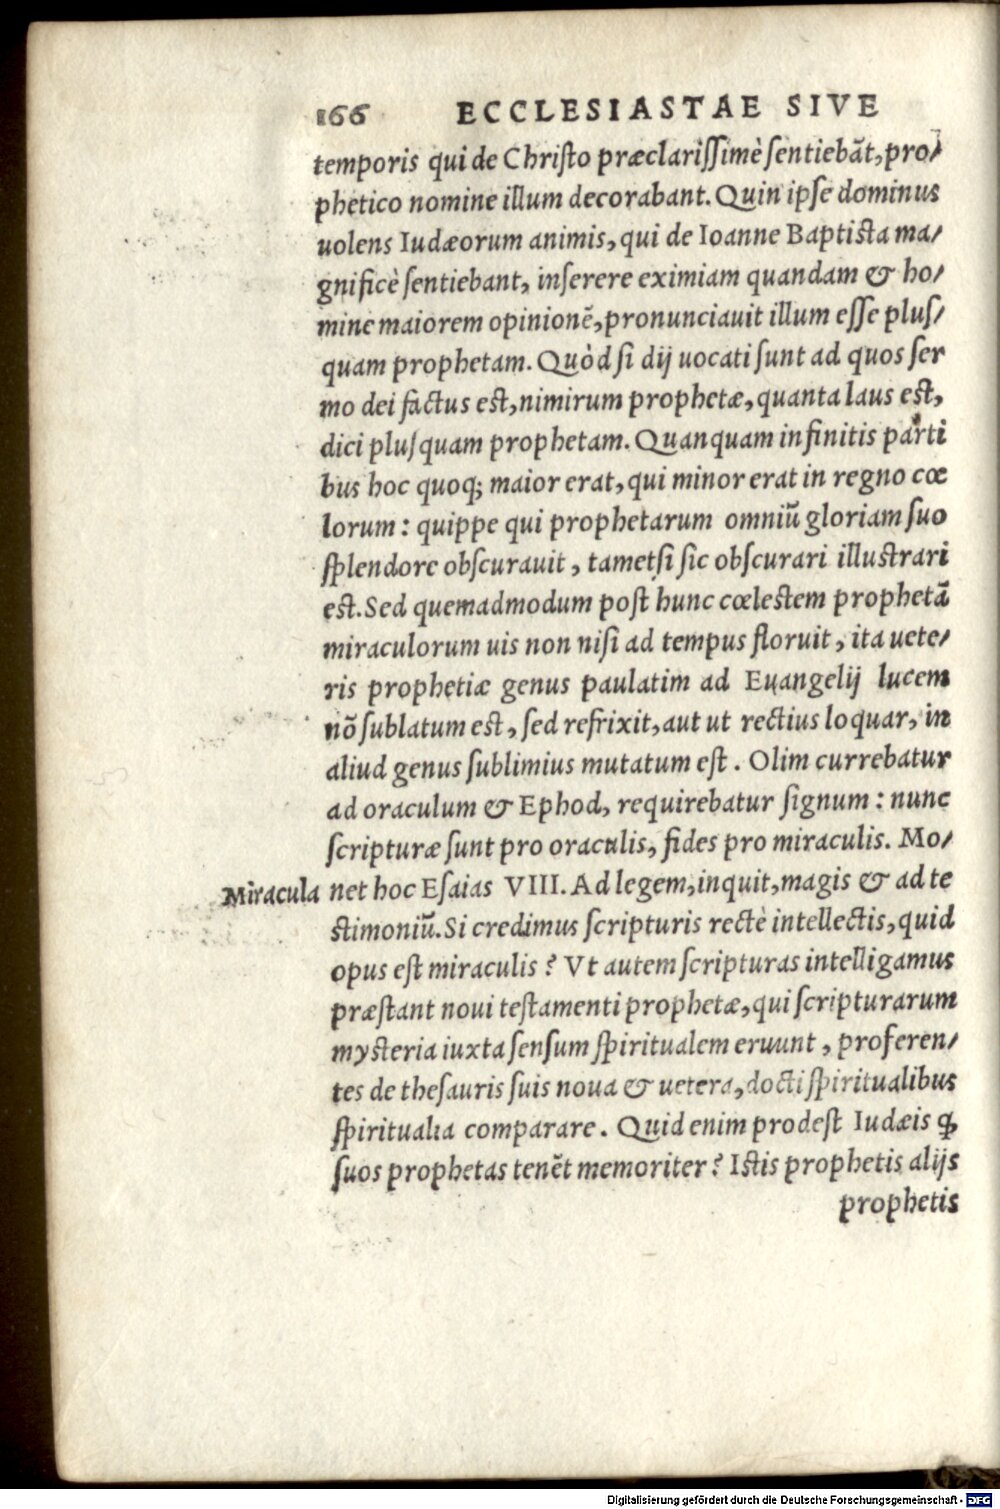 166 ECCLESIASTAE SIVE
temporis qui de Christo præclarissimè sentiebãt, pro/
phetico nomine illum decorabant. Quin ipse dominus
uolens Iudæorum animis, qui de Ioanne Baptista ma/
gnificè sentiebant, inserere eximiam quandam & ho/
mine maiorem opinionẽ, pronunciauit illum esse plus/
quam prophetam. Quòd si dij uocati sunt ad quos ser
mo dei factus est, nimirum prophetæ, quanta laus est,
dici plusquam prophetam. Quanquam infinitis parti
bus hoc quoq; maior erat, qui minor erat in regno cœ
lorum: quippe qui prophetarum omniũ gloriam suo
splendore obscurauit, tametsi sic obscurari illustrari
est. Sed quemadmodum post hunc cœlestem prophetã
miraculorum uis non nisi ad tempus floruit, ita uete/
ris prophetiæ genus paulatim ad Euangelij lucem
nõ sublatum est, sed refrixit, aut ut rectius loquar, in
aliud genus sublimius mutatum est. Olim currebatur
ad oraculum & Ephod, requirebatur signum: nunc
scripturæ sunt pro oraculis, fides pro miraculis. Mo/
Miracula net hoc Esaias VIII. Ad legem, inquit, magis & ad te
stimoniũ. Si credimus scripturis rectè intellectis, quid
opus est miraculis? Vt autem scripturas intelligamus
præstant noui testamenti prophetæ, qui scripturarum
mysteria iuxta sensum spiritualem eruunt, proferen/
tes de thesauris suis noua & uetera, docti spiritualibus
spiritualia comparare. Quid enim prodest Iudæis ꝙ
suos prophetas tenẽt memoriter? Istis prophetis alijs
prophetis
Digitalisierung gefördert durch die Deutsche Forschungsgemeinschaft - DFG